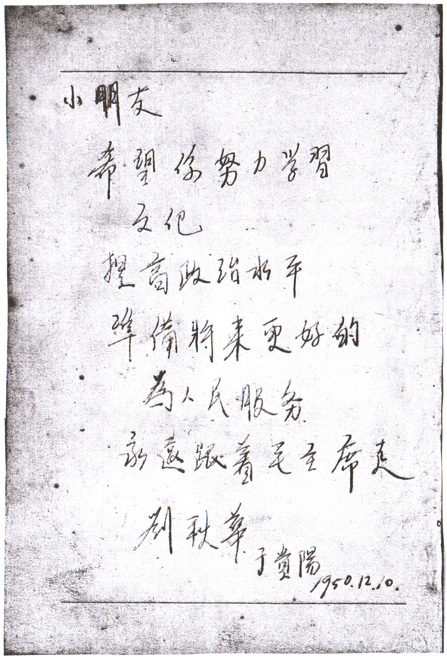 小朋友
希望你努力学習
文化
提高政治水平
準備将来更好的
為人民服务
永远跟着毛主席走
劉秋華
于貴陽
1950.12.10.